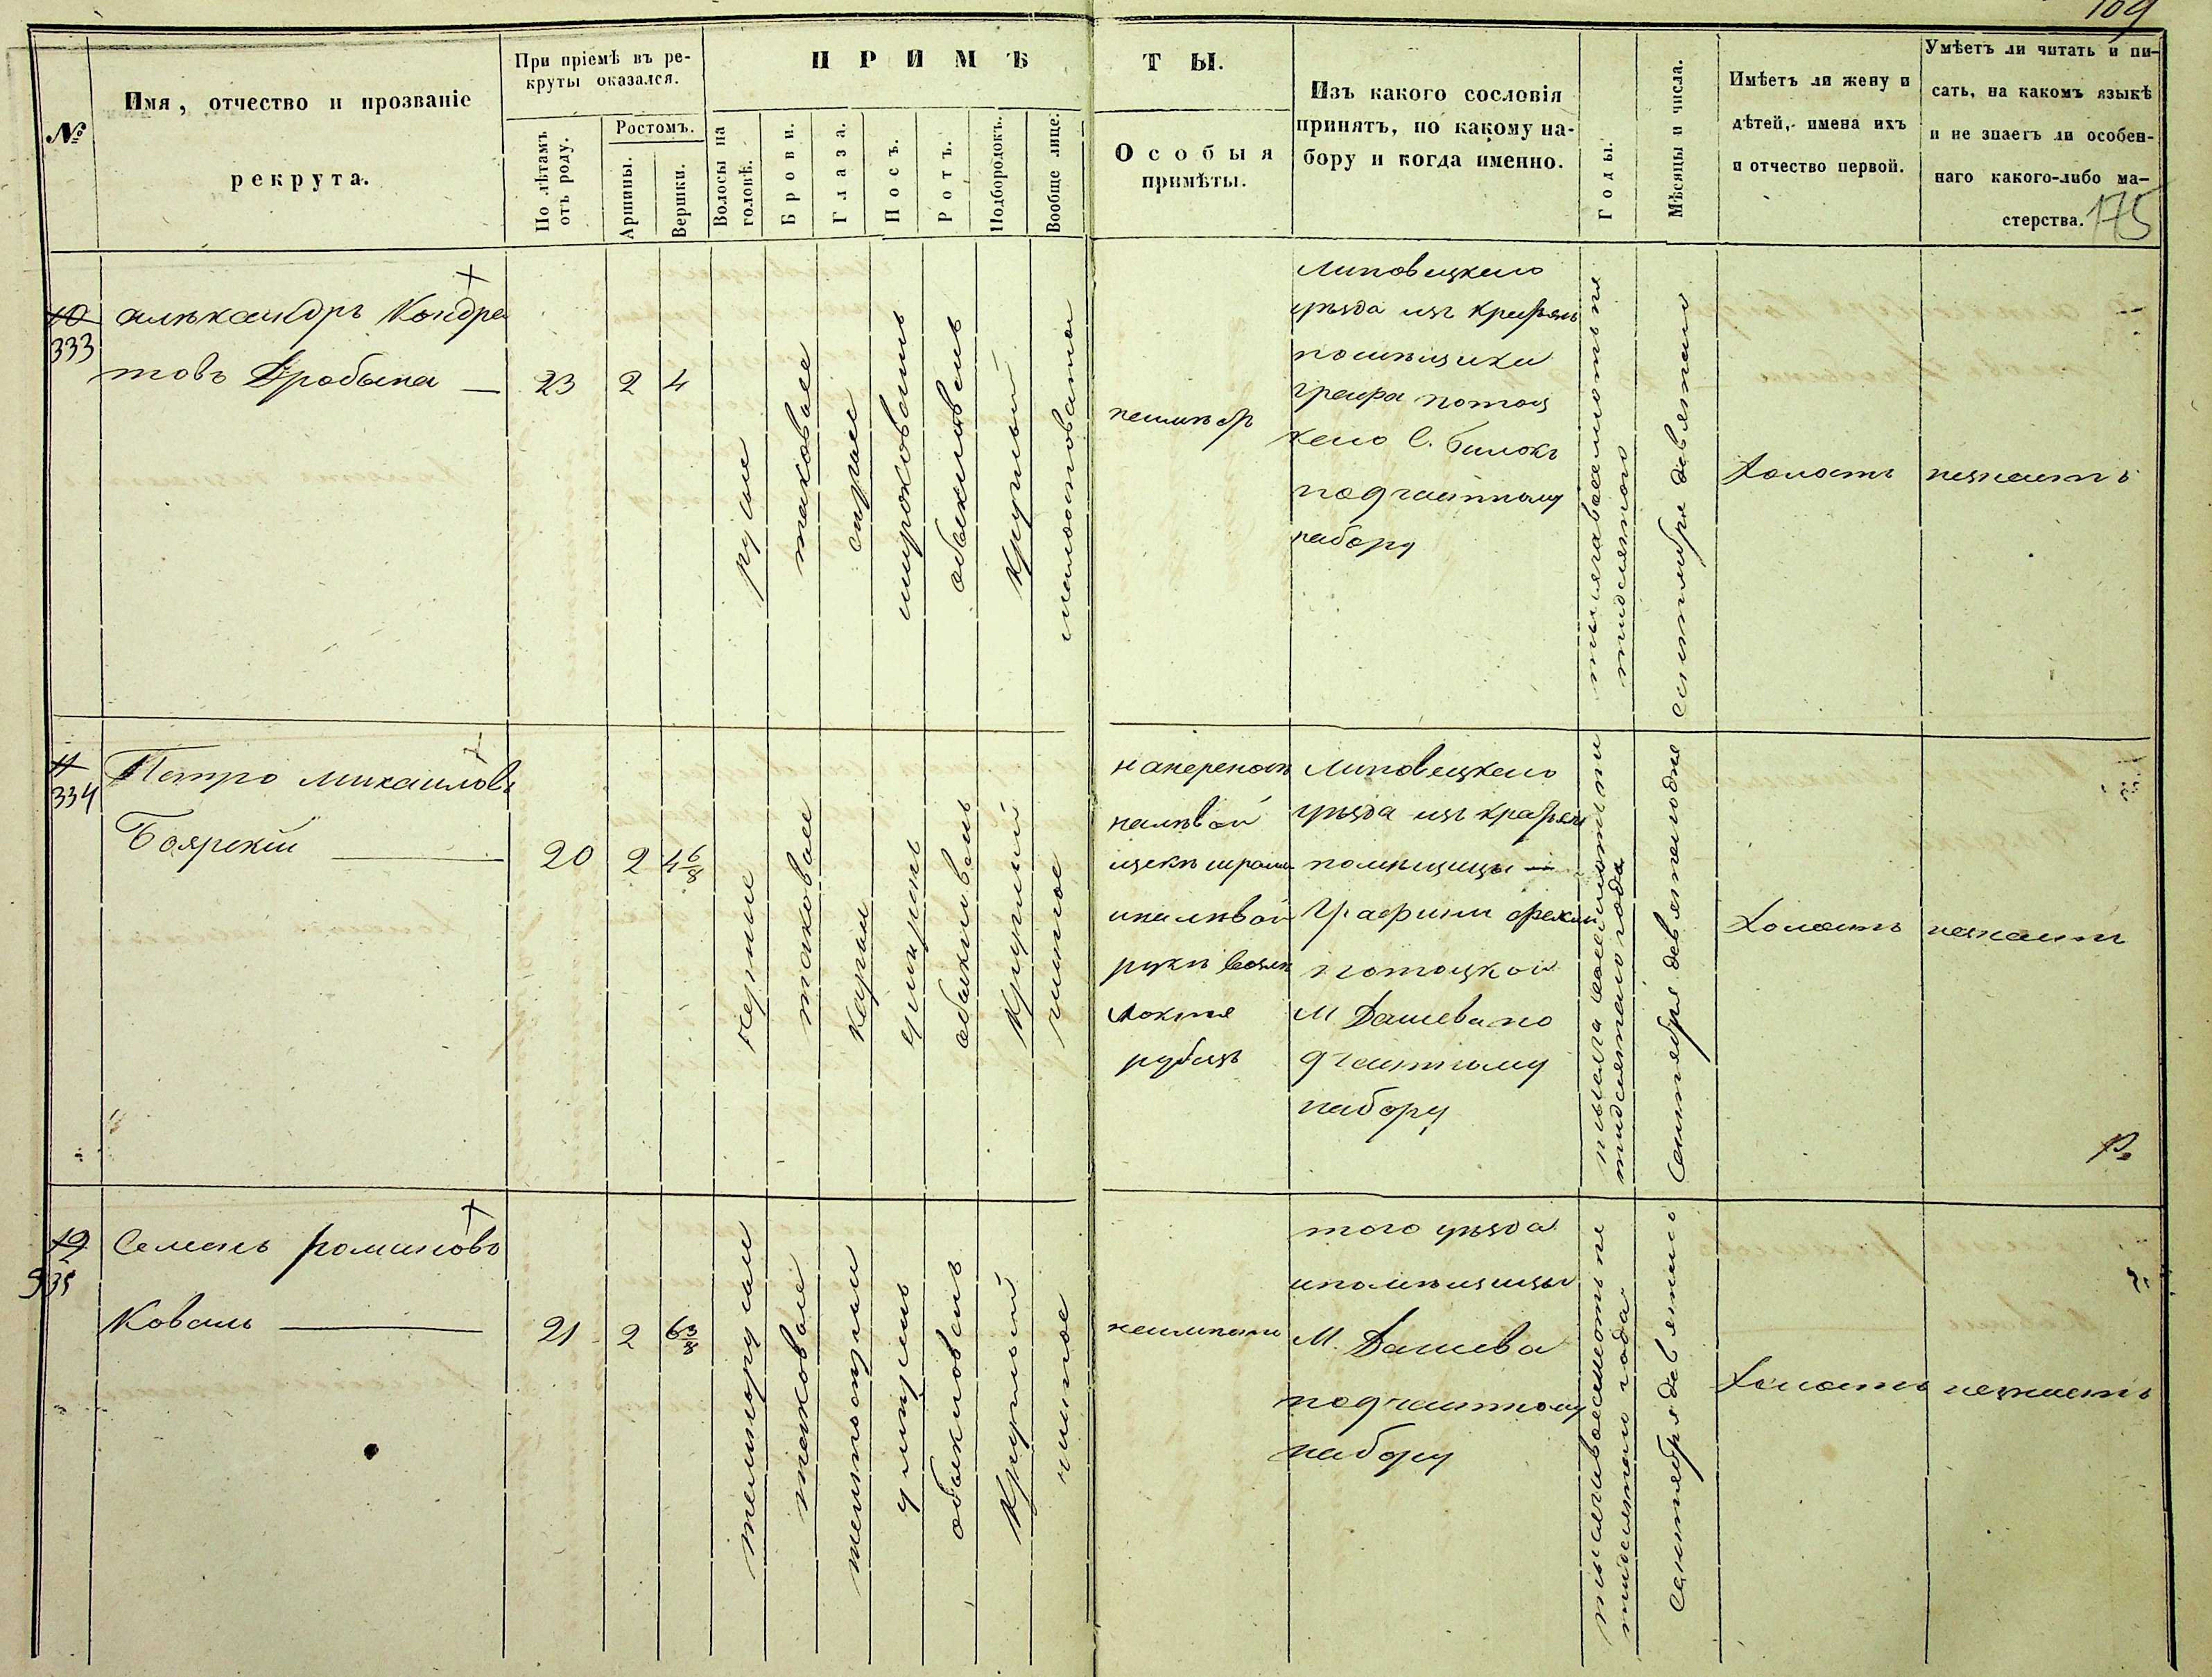 109
№
Имя, отчество и прозваніе
рекрута.
При пріемѣ въ ре-
круты оказался.
По лѣтамъ
отъ роду.
Ростомъ.
Аршины.
Вершки.
ПРИМѢ
ТЫ.
Волосы на
головѣ.
Брови.
Глаза.
Носъ.
Ротъ.
Подбородокъ.
Вообще лице.
Особыя
примѣты.
Изъ какого сословія
принятъ, по какому на-
бору и когда именно.
Годы.
Мѣсяцы и числа.
Имѣетъ ли жену и
дѣтей, имена ихъ
и отчество первой.
Умѣетъ ли читать и пи-
сать, на какомъ языкѣ
и не знаетъ ли особен-
наго какого-либо ма-
стерства.
175
10
333
алѣксандръ Кондра
товъ Дробына
23
2
4
русые
таковые
сѣрые
широковатъ
обыкновенъ
круглый
неимѣетъ
Липовецкаго
уѣзда изъ
помѣщика
графа потоц
каго С.
подчастному
набору
сентября девятаго
Холостъ
незнаетъ
11
334
Петро михаиловъ
Боярскій
20
2
4 6/8
черные
таковые
карые
умѣренъ
обыкновенъ
круглый
чистое
налѣвой
щекѣ шрамъ
иналѣвой
рукѣ возлѣ
локтя
рубецъ
Липовецкаго
уѣзда изъ
помѣщицы
Графини
потоцкой
М Дашева по
дчастному
набору
тидесятаго года
Сентября девятагодня
Холостъ
незнаетъ
12
335
Семенъ романовъ
Коваль
21
2
6 3/8
темнорусые
таковые
обыкновенъ
круглый
чистое
того уѣзда
ипомѣщицы
М. Дашева
подчастному
набору
тидесятаго года
Сентября девятаго
Холостъ
незнаетъ